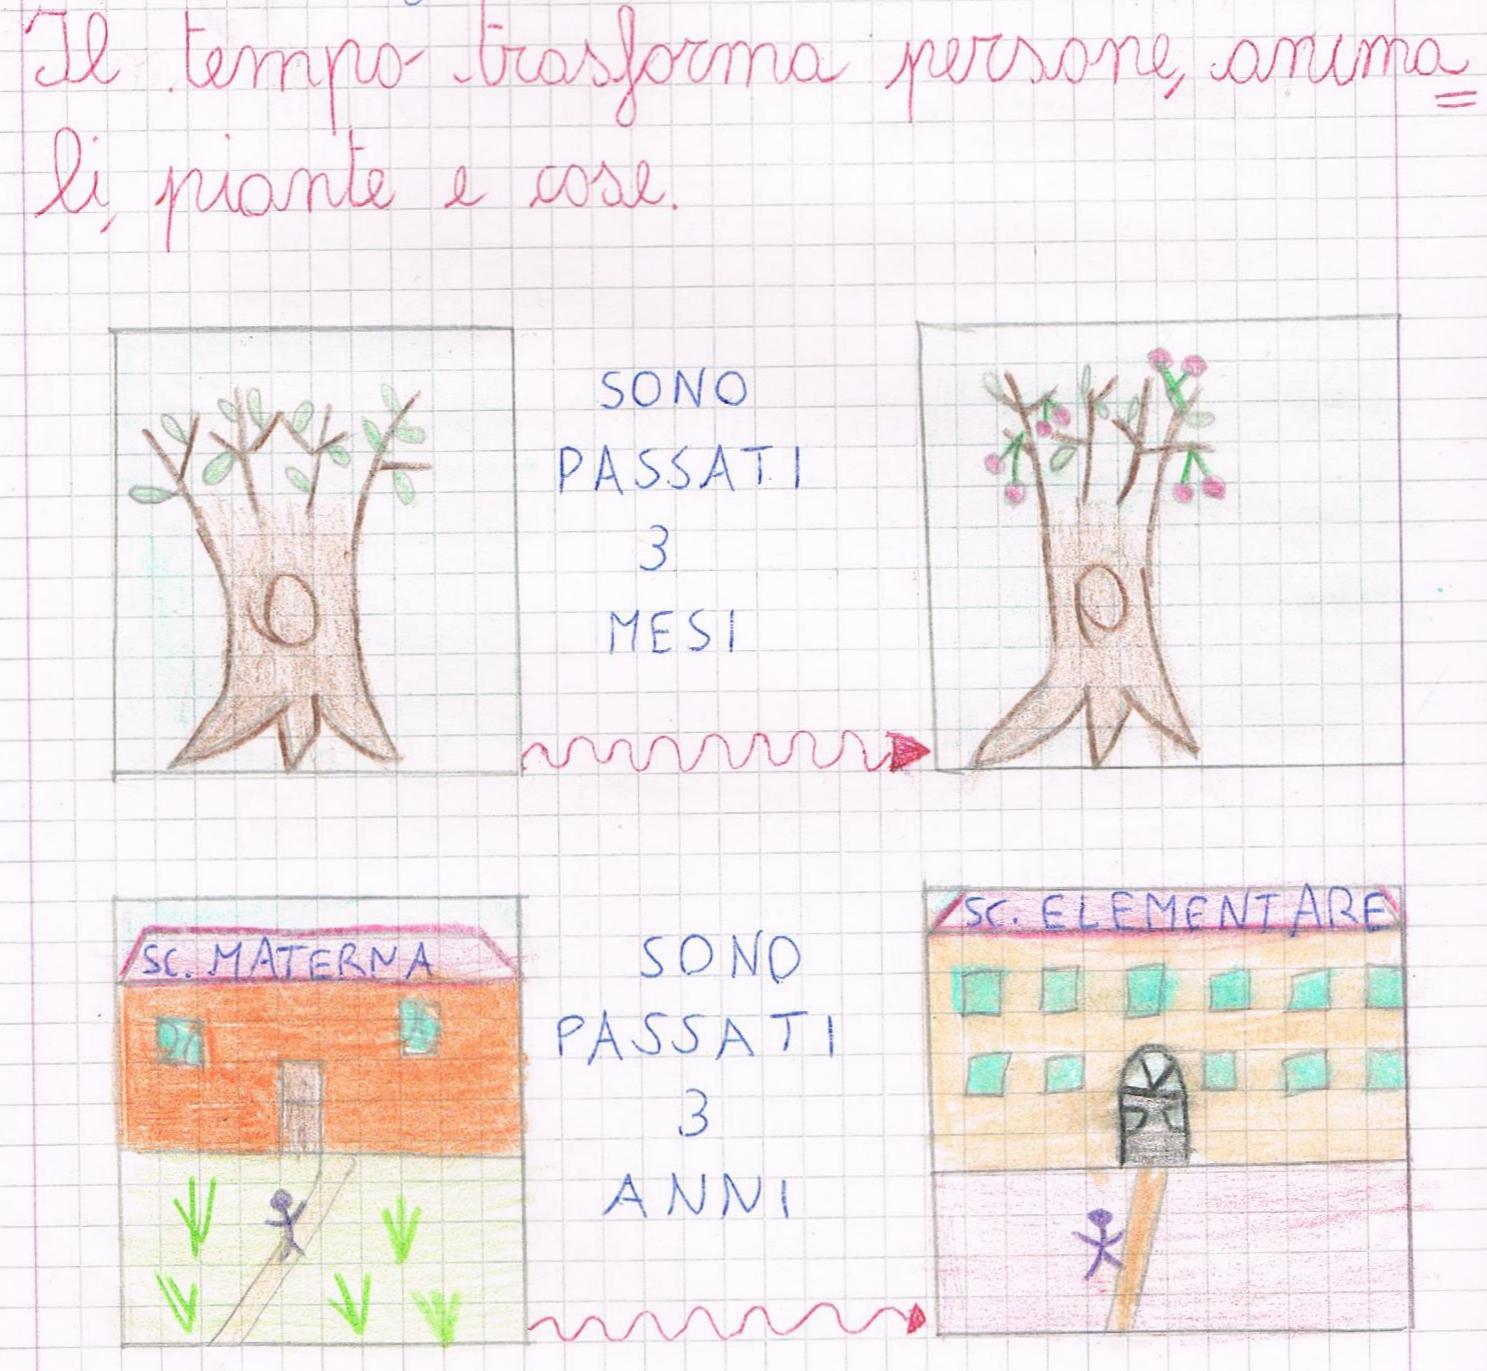 Il tempo trasforma persone, anima=
li, piante e cose.
SONO
PASSATI
3
MESI
SC. MATERNA
SONO
PASSATI
3
ANNI
SC. ELEMENTARE